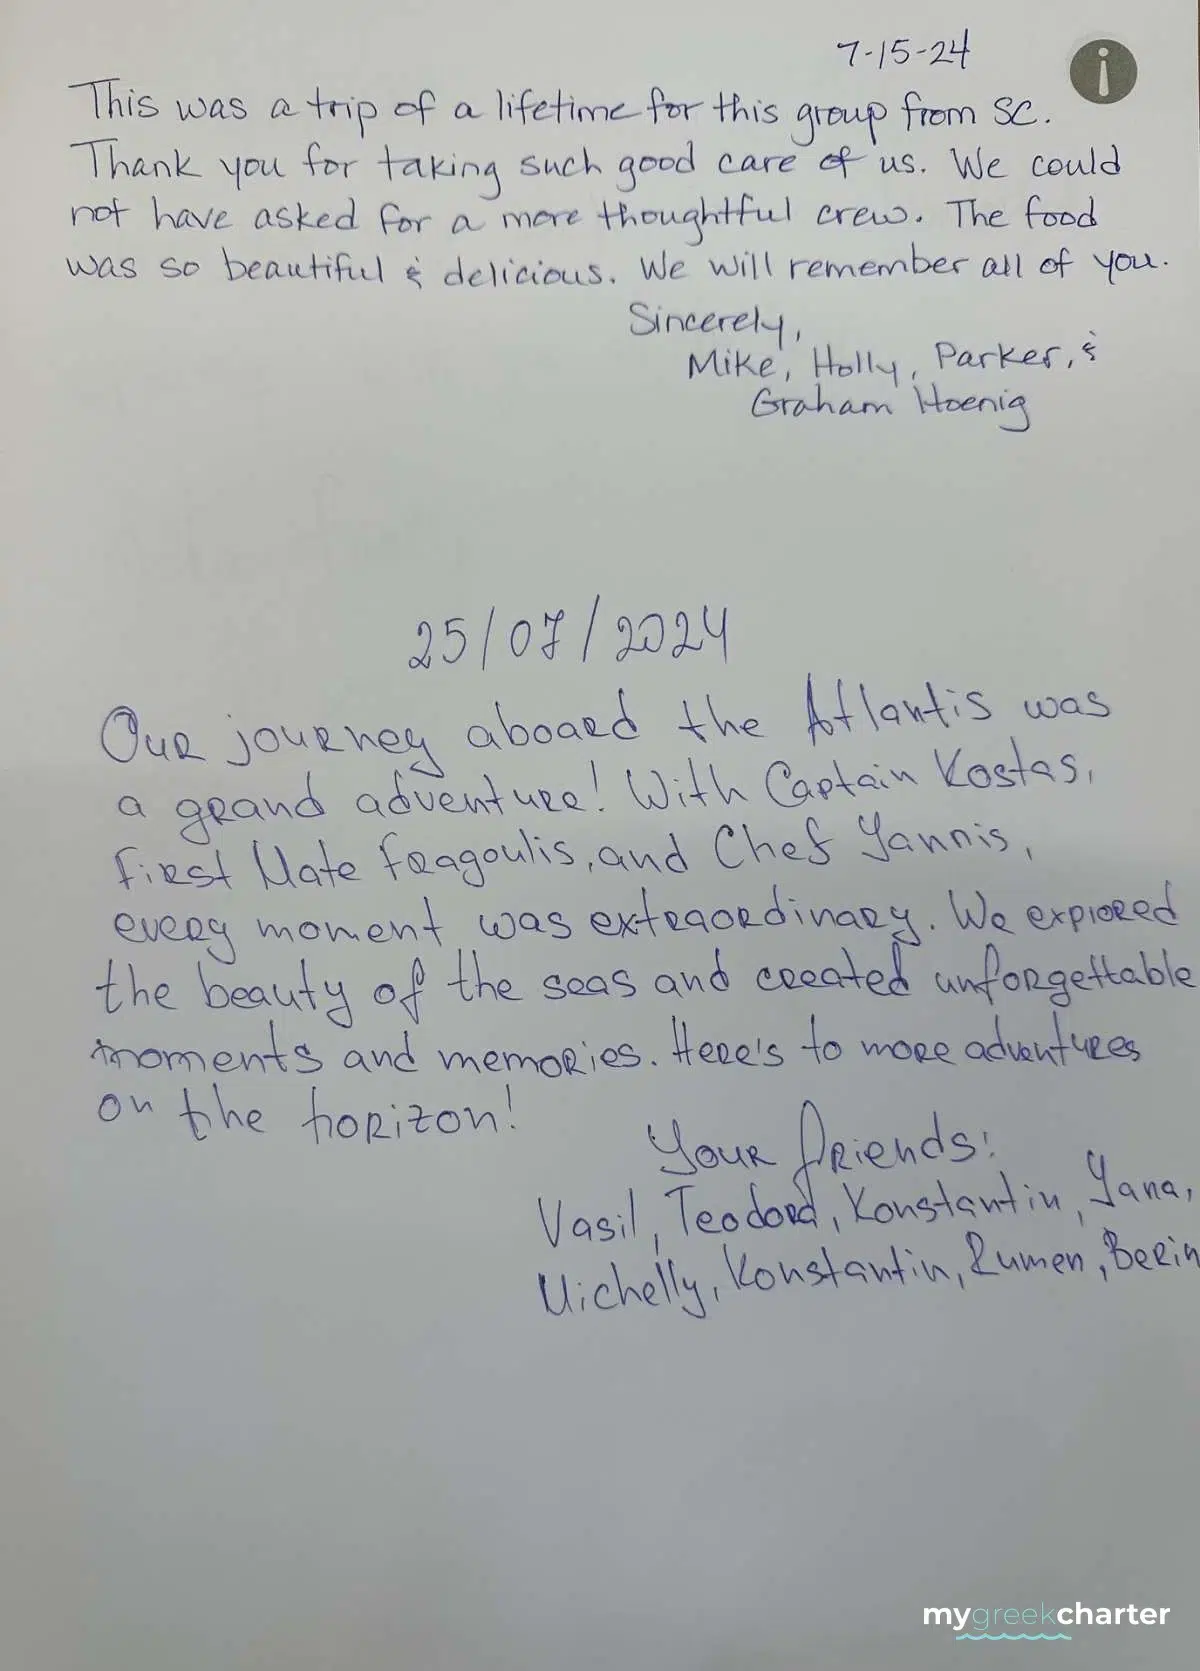 7-15-24
This was a trip of a lifetime for this group from SC.
Thank you for taking such good care of us. We could
not have asked for a more thoughtful crew. The food
was so beautiful & delicious. We will remember all of you.
Sincerely,
Mike, Holly, Parker, &
Graham Hoenig
25/07/2024
Our journey aboard the Atlantis was
a grand adventure! With Captain Kostas,
First Mate Fragoulis, and Chef Yannis,
every moment was extraordinary. We explored
the beauty of the seas and created unforgettable
moments and memories. Here's to more adventures
on the horizon!
Your friends:
Vasil, Teodora, Konstantin, Yana,
Michelly, Konstantin, Rumen, Berin
mygreekcharter